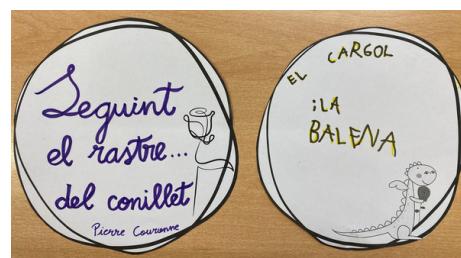 Seguint
el rastre...
del conillet
Pierre Couronne
EL CARGOL
i LA
BALENA